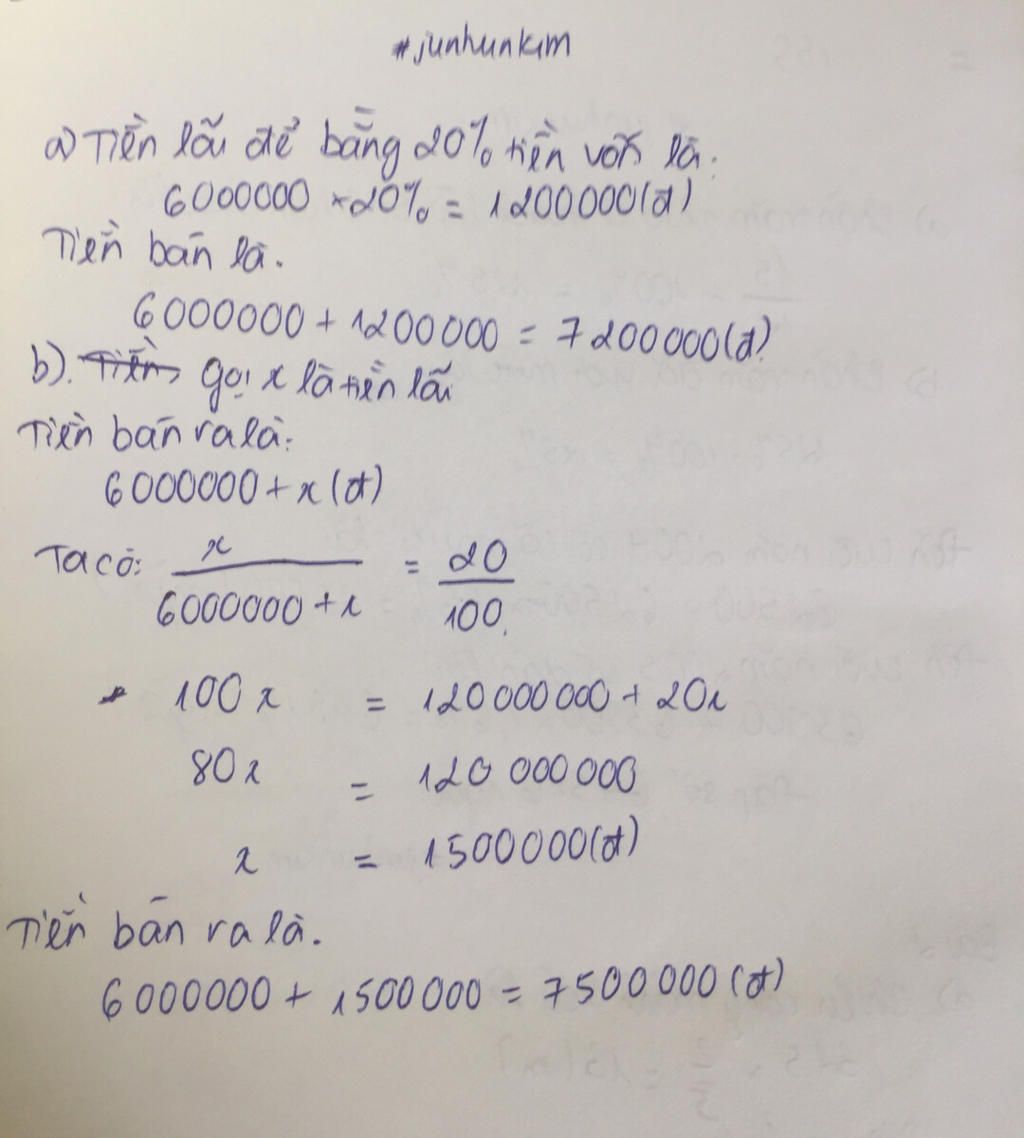 #junhunkim
a) Tiền lãi để bằng 20% tiền vốn là:
6000000 × 20% = 1200000(đ)
Tiền bán là.
6000000 + 1200000 = 7200000(đ).
b). Tiền gọi x là tiền lãi
Tiền bán ra là:
6000000 + x (đ)
Ta có: x / 6000000 + x = 20 / 100.
100x = 120000000 + 20x
80x = 120 000 000
x = 1500000(đ)
Tiền bán ra là.
6000000 + 1500000 = 7500000 (đ)